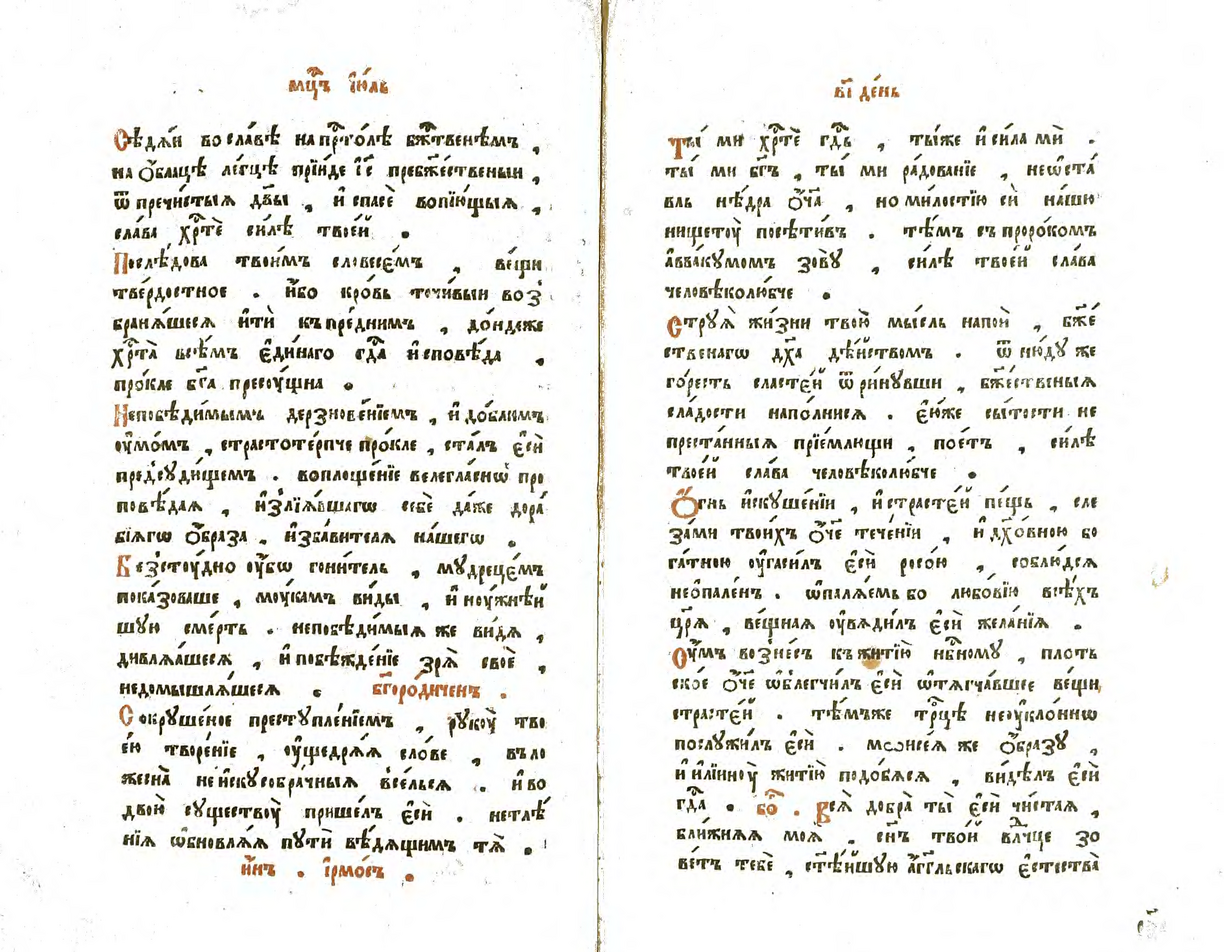 мцⷭ҇ъ і҆ю́ль
Сѣдѧ́и во сла́вѣ на прⷭ҇то́лѣ бжⷭ҇твенѣмъ ,
на ѻ҆́блацѣ ле́гцѣ прїи́де і҆с҃ пребж҃ественыи ,
ѿ пречи́стыѧ дв҃ы , и҆ спасѐ вопїю́щыѧ ,
сла́ва хрⷭ҇тѐ си́лѣ твое́й .
Послѣ́дова твои́мъ словесе́мъ , ве́щи
тве́рдостное . и҆́бо кро́вь точи́выи воз
бранѧ́шесѧ и҆тѝ къ пре́днимъ , до́ндеже
хрⷭ҇та̀ всѣ́мъ є҆ди́наго гдⷭ҇а и҆сповѣ́да .
про́кле бг҃а пресоу́щна .
Непобѣди́мымъ дерзнове́нїемъ , и҆ до́блимъ
оу҆мо́мъ , страстоте́рпче про́кле , ста́лъ є҆сѝ
предсꙋди́щемъ . воплоще́нїе велегла́снѡ про
повѣ́даѧ , и҆злїѧ́вшагѡ себѐ да́же до ра́
бїѧгѡ ѻ҆́браза , и҆зба́вителѧ на́шегѡ .
Безстоу́дно оу҆́бѡ гони́тель , мꙋдреце́мъ
пока́зоваше , моу́камъ ви́ды , и҆ ноу́жнѣй
шꙋю сме́рть . непобѣди́мыѧ же ви́дѧ ,
дивлѧ́шесѧ , и҆ побѣжде́нїе зрѧ̀ своѐ ,
недомышлѧ́шесѧ . бг҃оро́диченъ .
Сокрꙋше́ное престꙋпле́нїемъ , рꙋкоу̀ тво
е́ю творе́нїе , оу҆ще́дрѧѧ сло́ве , въ ло
жесна̀ не и҆скꙋсобра́чныѧ всели́сѧ . и҆ во
двою̀ сꙋществоу̀ прише́лъ є҆сѝ . нетлѣ́
нїѧ ѡ҆бновлѧ́ѧ пꙋтѝ вѣ́дѧщимъ тѧ̀ .
и҆́нъ . і҆рмо́съ .
в҃і де́нь
Ты́ ми хрⷭ҇тѐ гдⷭ҇ь , ты́же и҆ си́ла мѝ .
ты́ ми бг҃ъ , ты́ ми ра́дованїе , неѡ҆ста́
вль нѣ́дра ѻ҆́ч҃а , но милостїю сѝ на́шю
нищетоу̀ посѣти́въ . тѣ́мъ съ проро́комъ
а҆ввакꙋмомъ зовꙋ̀ , си́лѣ твое́й сла́ва
человѣколю́бче .
Стрꙋѧ̀ жи́зни твою̀ мы́сль напоѝ , бж҃е
ственагѡ дх҃а дѣ́йством . ѿ ню́дꙋ же
го́ресть сласте́й ѿри́нꙋвши , бж҃е́ственыѧ
сла́дости напо́лнисѧ . є҆ю́же сы́тости не
преста́нныѧ прїе́млющи , пое́тъ , си́лѣ
твое́й сла́ва человѣколю́бче .
Ѻ҆́гнь и҆скꙋше́нїи , и҆ страсте́й пе́щь , сле
за́ми твои́хъ ѻ҆́ч҃е тече́нїи , и҆ дх҃о́вною бо
га́тною оу҆гаси́лъ є҆сѝ росо́ю , соблю́дсѧ
неѡ҆пале́н . ѡ҆палѧ́емь бо любо́вїю всѣ́хъ
цр҃ѧ̀ , ве́щнаѧ оу҆вѧди́лъ є҆сѝ жела́нїѧ .
Оу҆́мъ возне́съ къ житїю̀ нбⷭ҇номꙋ , пло́ть
ское ѻ҆́ч҃е ѡ҆блегчи́лъ є҆сѝ ѡ҆тѧгча́вшее ве́щи
страсте́й . тѣ́мъже трⷪ҇цѣ неоу҆кло́ннѡ
послꙋжи́лъ є҆сѝ . мѡисе́ѧ же ѻ҆́бразꙋ ,
и҆ и҆лїиноу̀ житїю̀ подо́бѧсѧ , ви́дѣлъ є҆сѝ
гдⷭ҇а . бо҃ . Всѧ̀ добра̀ ты̀ є҆сѝ чи́стаѧ ,
бли́жнѧѧ моѧ̀ . сн҃ъ твой влⷣчце зо
ве́тъ тебѐ , ст҃ѣйшꙋю а҆́гг҃льскагѡ є҆стества̀